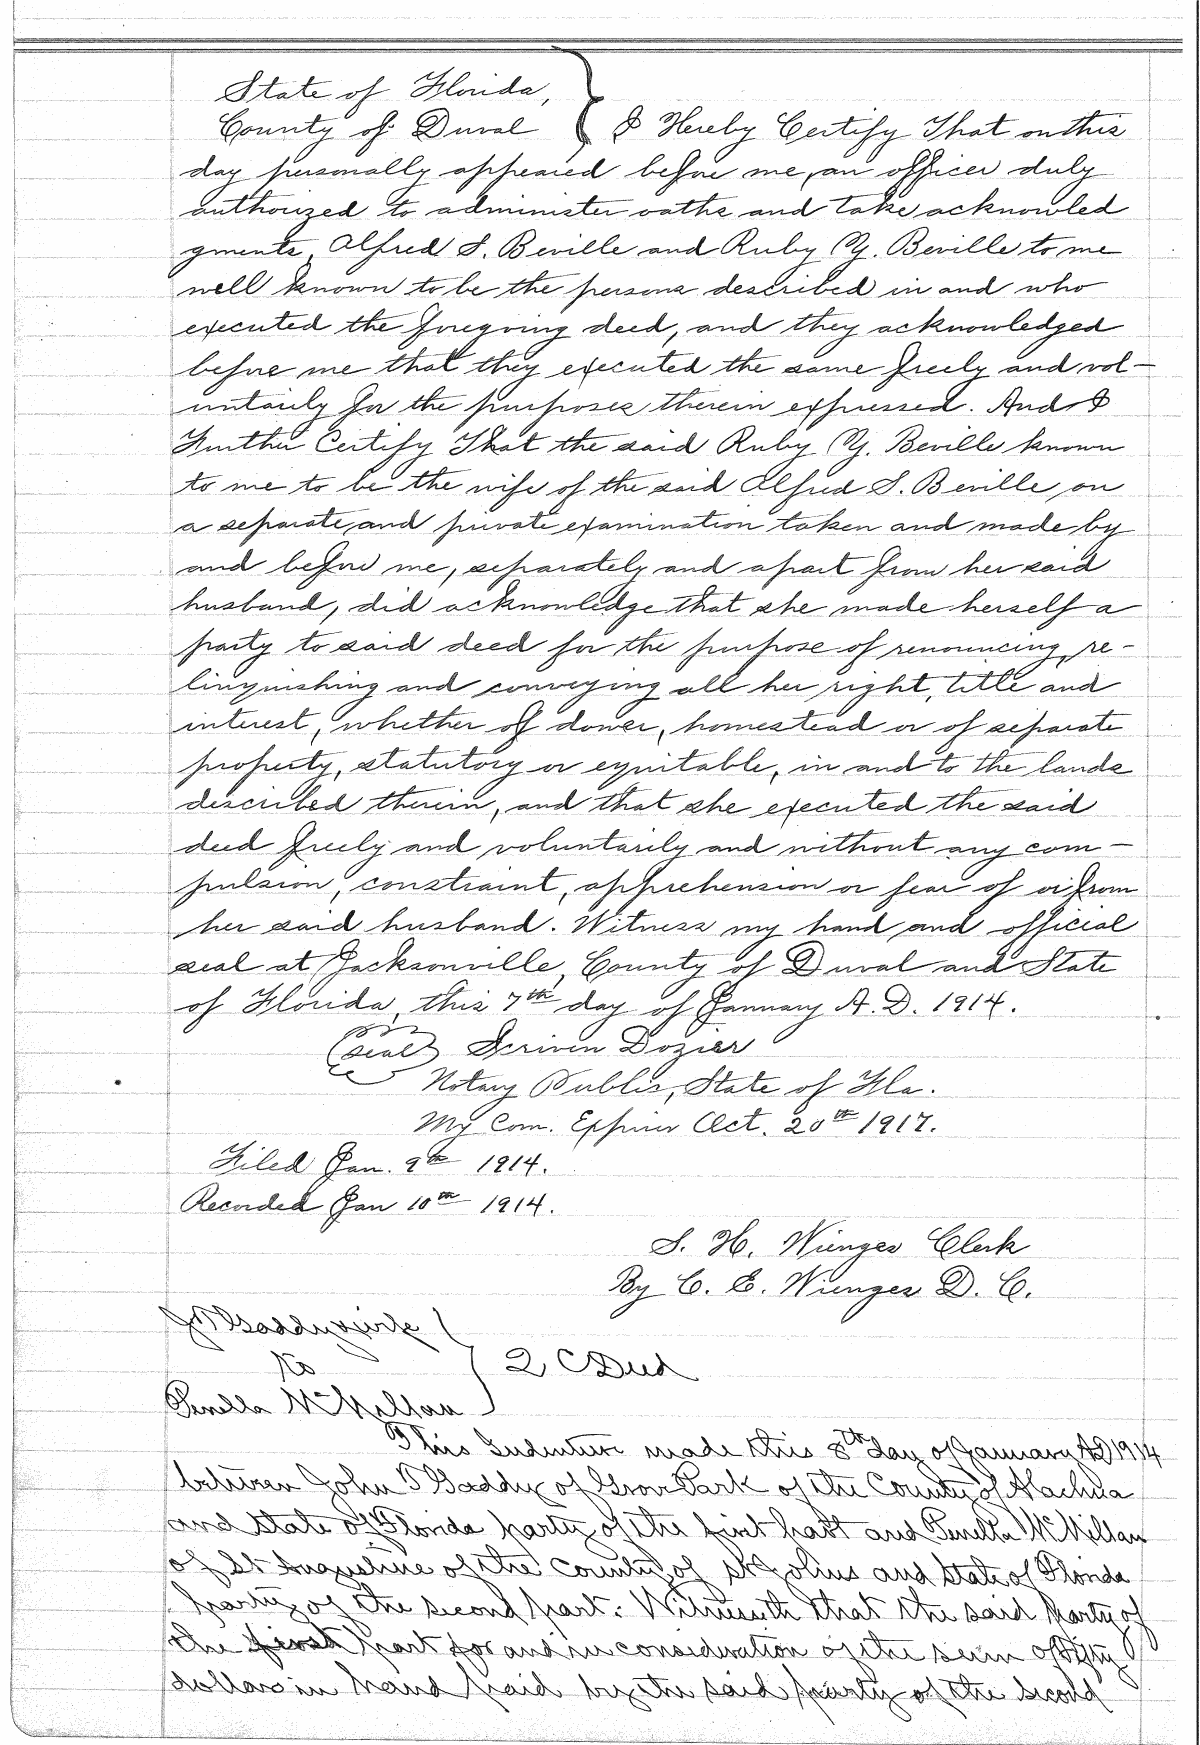 State of Florida,
County of Duval } I Hereby Certify That on this
day personally appeared before me, an officer duly
authorized to administer oaths and take acknowled
gments, Alfred S. Beville and Ruby Y. Beville to me
well known to be the persons described in and who
executed the foregoing deed, and they acknowledged
before me that they executed the same freely and vol-
untarily for the purposes therein expressed. And I
Further Certify That the said Ruby Y. Beville known
to me to be the wife of the said Alfred S. Beville, on
a separate and private examination taken and made by
and before me, separately and apart from her said
husband, did acknowledge that she made herself a
party to said deed for the purpose of renouncing, re-
linquishing and conveying all her right, title and
interest, whether of dower, homestead or of separate
property, statutory or equitable, in and to the lands
described therein, and that she executed the said
deed freely and voluntarily and without any com-
pulsion, constraint, apprehension or fear of or from
her said husband. Witness my hand and official
seal at Jacksonville, County of Duval and State
of Florida, this 7th day of January A.D. 1914.
(seal) Scriven Dozier
Notary Public, State of Fla.
My Com. Expires Oct. 20th 1917.
Filed Jan. 9th 1914.
Recorded Jan 10th 1914.
S. H. Wienges Clerk
By C. E. Wienges D. C.
Gaddy
to } 2 C Deed
Penella McMillan
This Indenture made this 8th day of January AD 1914
between John T Gaddy of Grove Park of the County of Alachua
and State of Florida party of the first part and Penella McMillan
of St Augustine of the County of St Johns and State of Florida
party of the second part: Witnesseth that the said party of
the first part for and in consideration of the sum of Fifty
dollars in hand paid by the said party of the second